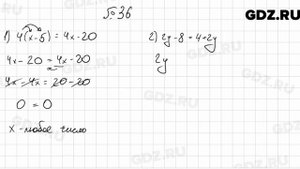 № 36
GDZ.RU
1) 4(x-5) = 4x-20
4x-20 = 4x-20
4x-4x = 20-20
0 = 0
x - любое число
2) 2y-8 = 4+2y
2y
GDZ.RU